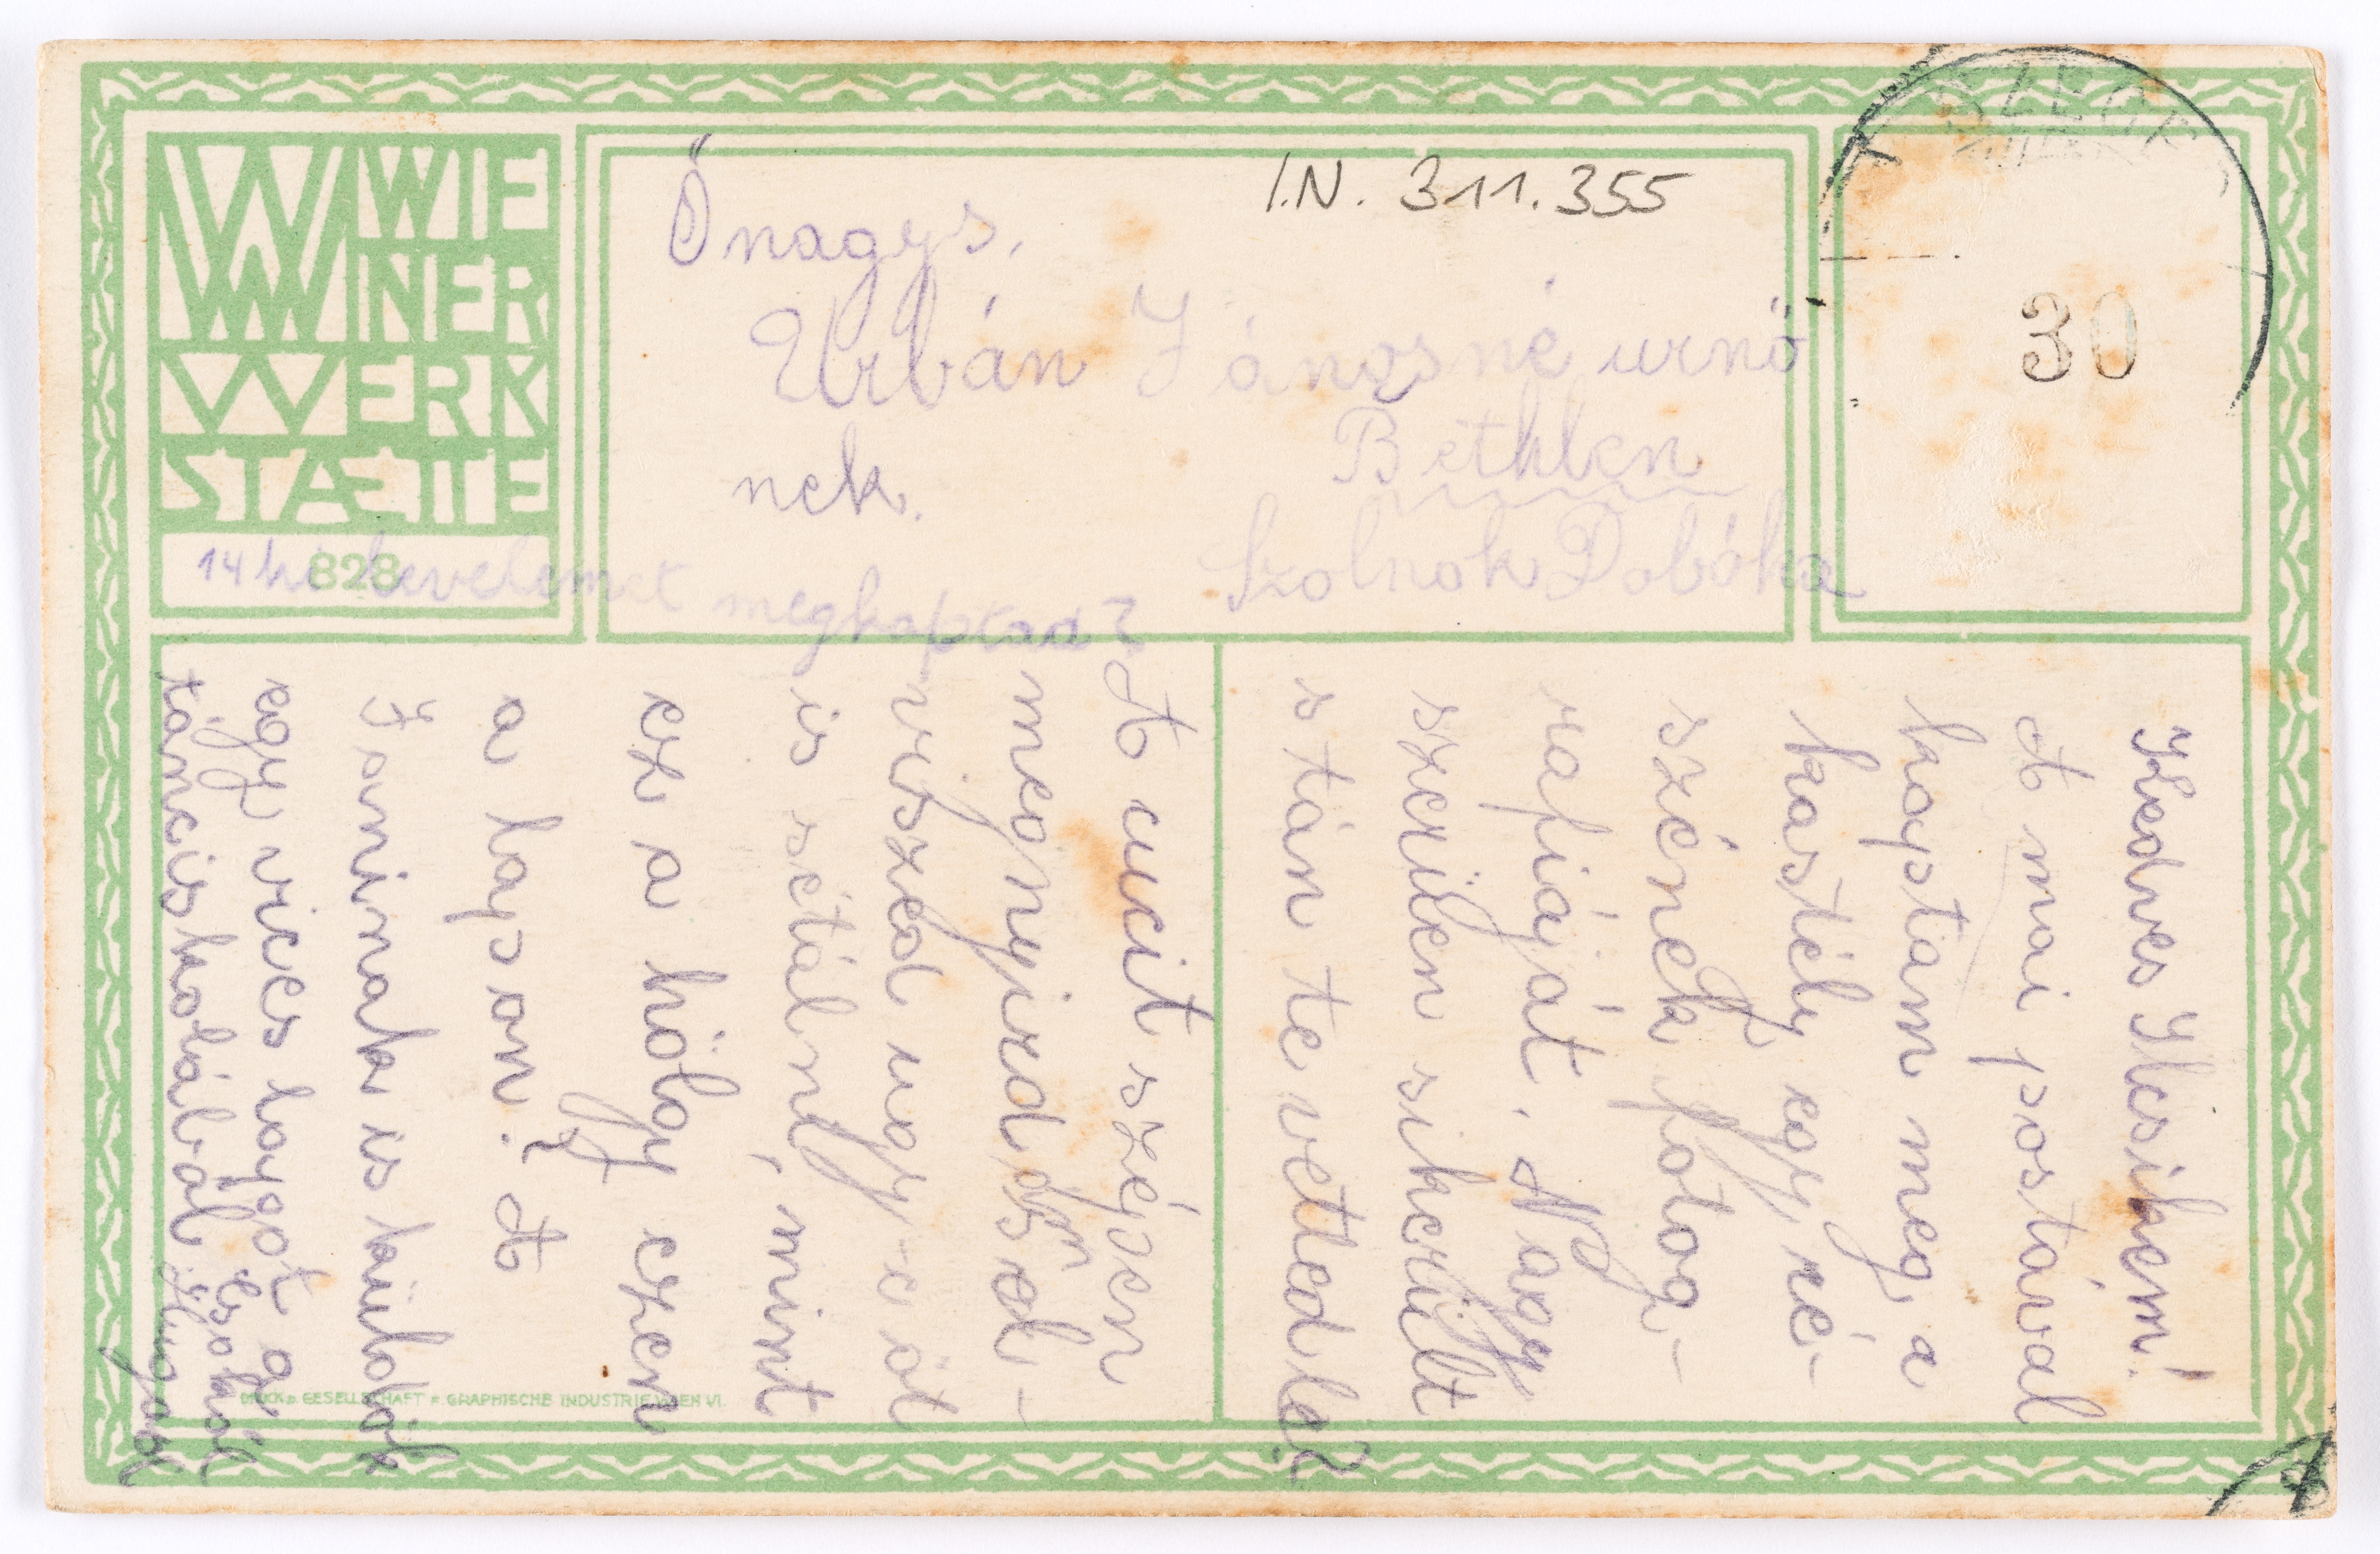 WIE
NER
WERK
STÆTTE
828
I.N. 311.355
SZEGE
30
Őnagys.
Urbán Jánosné urnő
nek.
Bethlen
Szolnok Doboka
14 ki levelemet megkaptad?
Kedves Ilusikém!
A mai postával
kaptam meg a
kastély egy ré-
szének fotog-
rafiáját. Nagy
szerüen sikerült
s tán te vetted le?
A cucit szépen
megnyirod és el-
viszed ugy-e őt
is sétálni, mint
ez a hölgy ezen
a lapon? A
Janinak is küldök
egy vices lapot a
tánciskolából
DRUCK D. GESELLSCHAFT F. GRAPHISCHE INDUSTRIE WIEN VI.